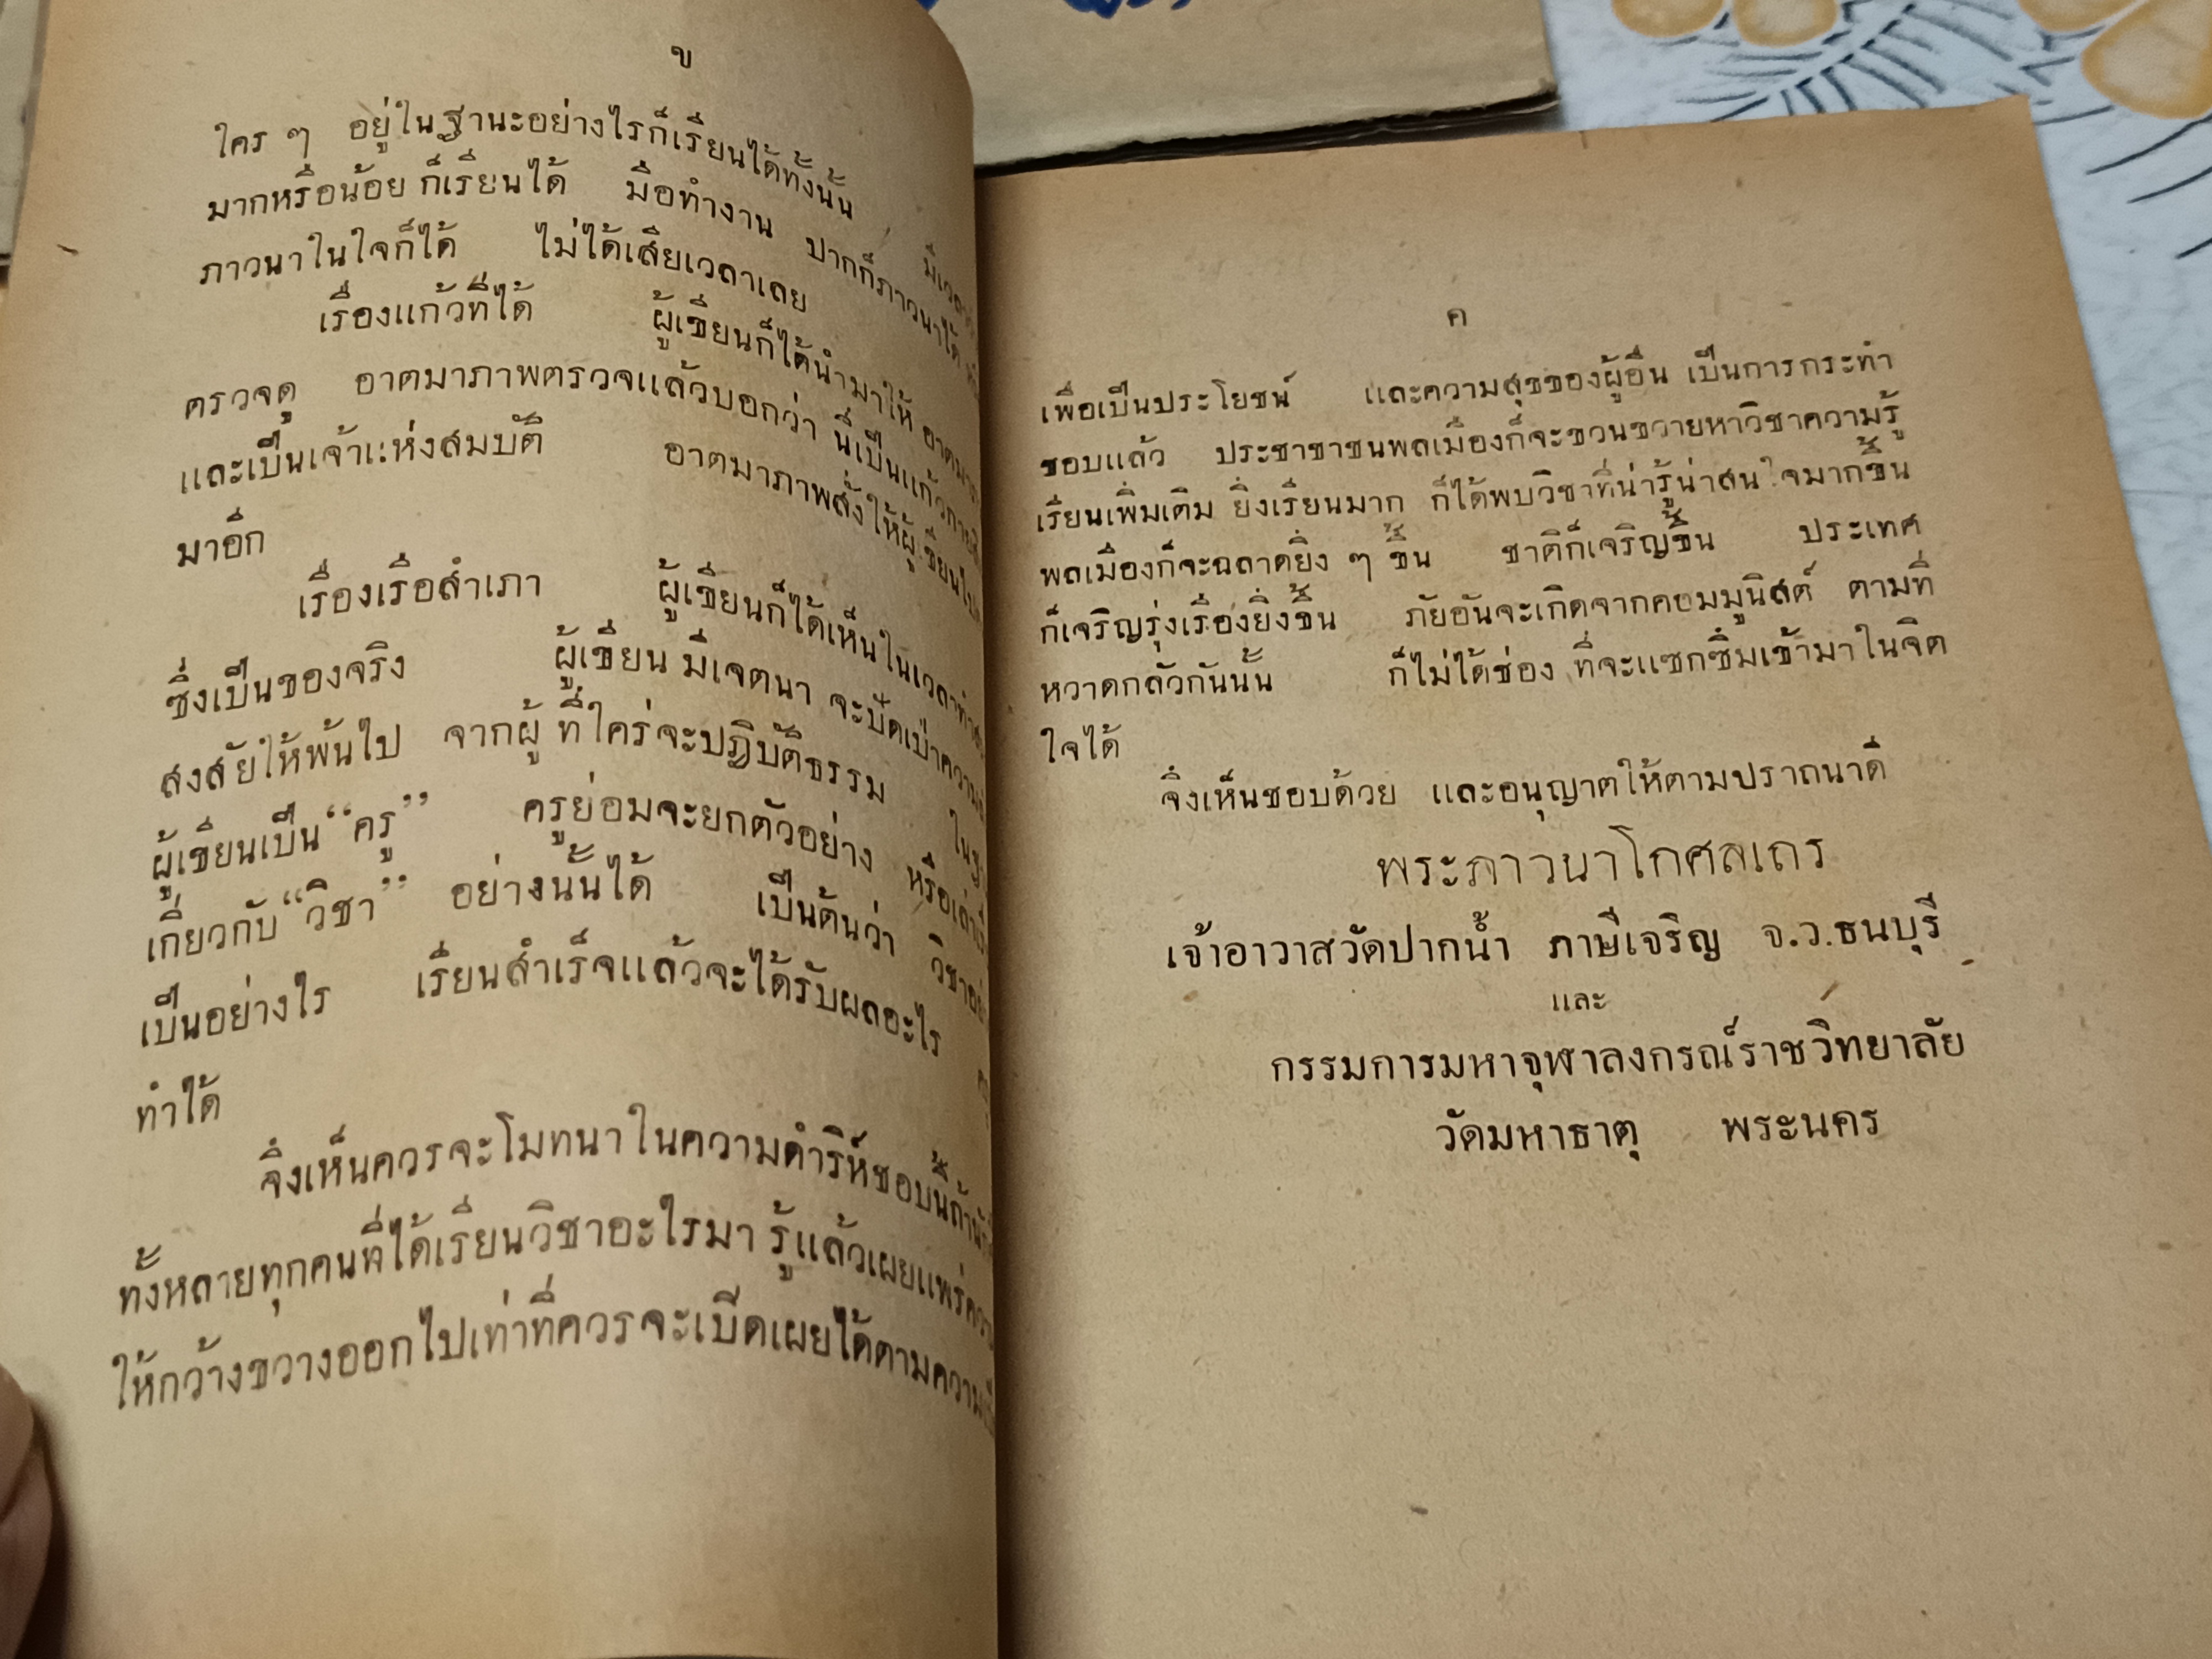 ข
ใคร ๆ อยู่ในฐานะอย่างไรก็เรียนได้ทั้งนั้น
มากหรือน้อย ก็เรียนได้ มือทำงาน ปากก็ภาวนาได้
ภาวนาในใจก็ได้ ไม่ได้เสียเวลาเลย
เรื่องแก้วที่ได้ ผู้เขียนก็ได้นำมาให้
ตรวจดู อาตมาภาพตรวจแล้วบอกว่า นี่เป็นแก้ว
และเป็นเจ้าแห่งสมบัติ อาตมาภาพสั่งให้ผู้เขียน
มาอีก
เรื่องเรือสำเภา ผู้เขียนก็ได้เห็นในเวลา
ซึ่งเป็นของจริง ผู้เขียน มีเจตนา จะปัดเป่า
สงสัยให้พ้นไป จากผู้ ที่ใคร่จะปฏิบัติธรรม
ผู้เขียนเป็น “ครู” ครูย่อมจะยกตัวอย่าง หรือ
เกี่ยวกับ “วิชา” อย่างนั้นได้ เป็นต้นว่า
เป็นอย่างไร เรียนสำเร็จแล้วจะได้รับผลอะไร
ทำได้
จึงเห็นควรจะโมทนาในความดำริห์ชอบนี้
ทั้งหลายทุกคนที่ได้เรียนวิชาอะไรมา รู้แล้วเผยแพร่
ให้กว้างขวางออกไปเท่าที่ควรจะเปิดเผยได้ตาม
ค
เพื่อเป็นประโยชน์ และความสุขของผู้อื่น เป็นการกระทำ
ชอบแล้ว ประชาชาชนพลเมืองก็จะขวนขวายหาวิชาความรู้
เรียนเพิ่มเติม ยิ่งเรียนมาก ก็ได้พบวิชาที่น่ารู้น่าสนใจมากขึ้น
พลเมืองก็จะฉลาดยิ่ง ๆ ขึ้น ชาติก็เจริญขึ้น ประเทศ
ก็เจริญรุ่งเรืองยิ่งขึ้น ภัยอันจะเกิดจากคอมมูนิสต์ ตามที่
หวาดกลัวกันนั้น ก็ไม่ได้ช่อง ที่จะแซกซึมเข้ามาในจิต
ใจได้
จึงเห็นชอบด้วย และอนุญาตให้ตามปราถนาดี
พระภาวนาโกศลเถร
เจ้าอาวาสวัดปากน้ำ ภาษีเจริญ จ.ว.ธนบุรี
และ
กรรมการมหาจุฬาลงกรณ์ราชวิทยาลัย
วัดมหาธาตุ พระนคร